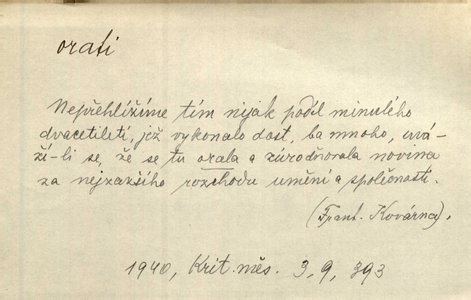 orati
Nepřehlížíme tím nijak podíl minulého
dvacetiletí, jež vykonalo dost, ba mnoho, uvá-
ží-li se, že se tu orala a zúrodňovala novina
za nejzazšího rozchodu umění a společnosti.
(Frant. Kovárna),
1940, Krit. měs. 3, 9, 393